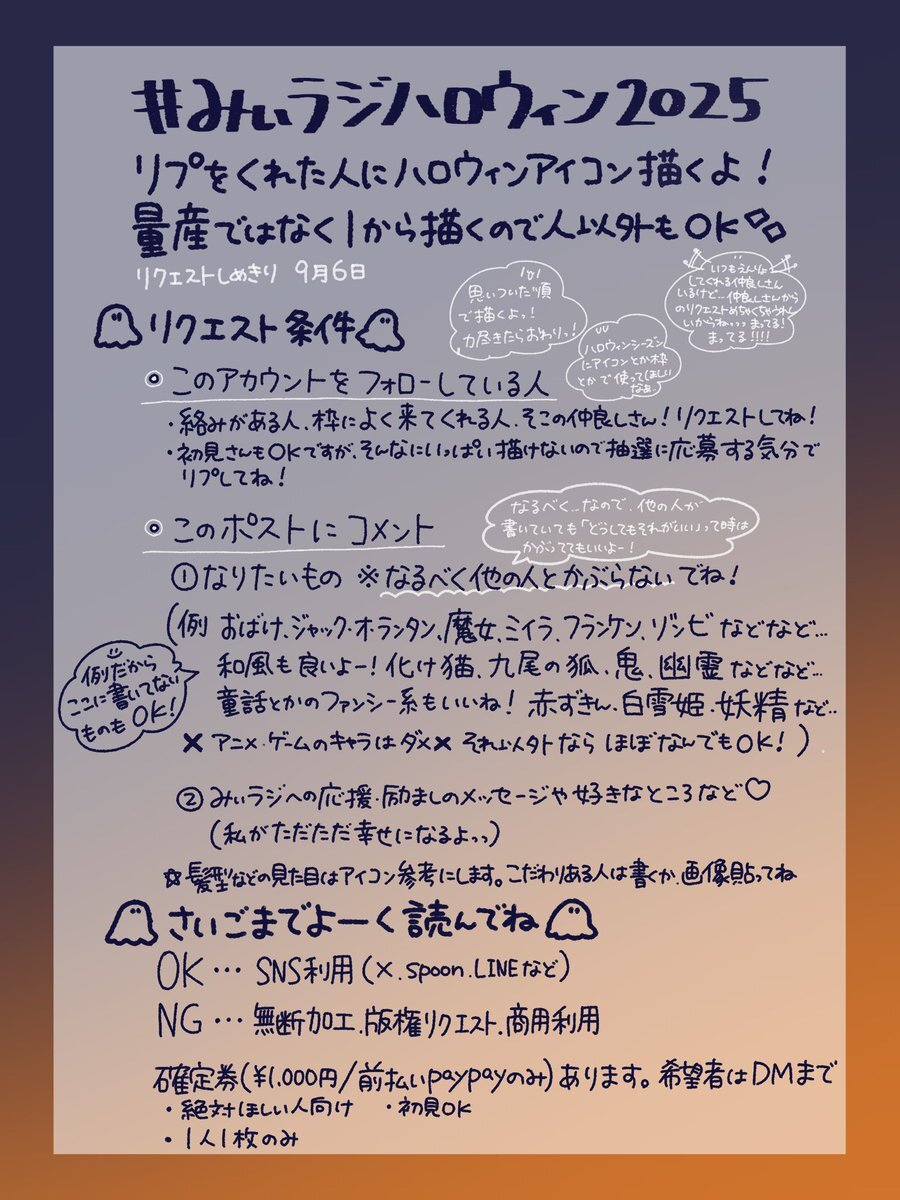 #みぃラジハロウィン2025
リプをくれた人にハロウィンアイコン描くよ！
量産ではなく1から描くので人以外もOK
リクエストしめきり 9月6日
思いついた順
で描くよっ！
力尽きたらおわりっ！
ハロウィンシーズン
にアイコンとか枠
とかで使ってほしい
なぁ..
いつもえんりょ
してくれる仲良しさん
いるけど…仲良しさんから
のリクエストめちゃくちゃうれし
いからねッッッまってる！
まってる！！！！
リクエスト条件
◎このアカウントをフォローしている人
・絡みがある人、枠によく来てくれる人、そこの仲良しさん！リクエストしてね！
・初見さんもOKですが、そんなにいっぱい描けないので抽選に応募する気分で
リプしてね！
◎このポストにコメント
なるべく…なので、他の人が
書いていても「どうしてもそれがいい」って時は
かぶっててもいいよー！
①なりたいもの ※なるべく他の人とかぶらないでね！
(例 おばけ、ジャック・オ・ランタン、魔女、ミイラ、フランケン、ゾンビなどなど…
和風も良いよー！化け猫、九尾の狐、鬼、幽霊などなど…
童話とかのファンシー系もいいね！赤ずきん、白雪姫・妖精など..
例だから
ここに書いてない
ものもOK！
×アニメ・ゲームのキャラはダメ× それ以外ならほぼなんでもOK！)
②みぃラジへの応援・励ましのメッセージや好きなところなど♡
(私がただただ幸せになるよっっ)
☆髪型などの見た目はアイコン参考にします。こだわりある人は書くか、画像貼ってね
さいごまでよーく読んでね
OK…SNS利用(X.spoon.LINEなど)
NG…無断加工、版権リクエスト、商用利用
確定券(¥1,000円/前払いpaypayのみ)あります。希望者はDMまで
・絶対ほしい人向け ・初見OK
・1人1枚のみ